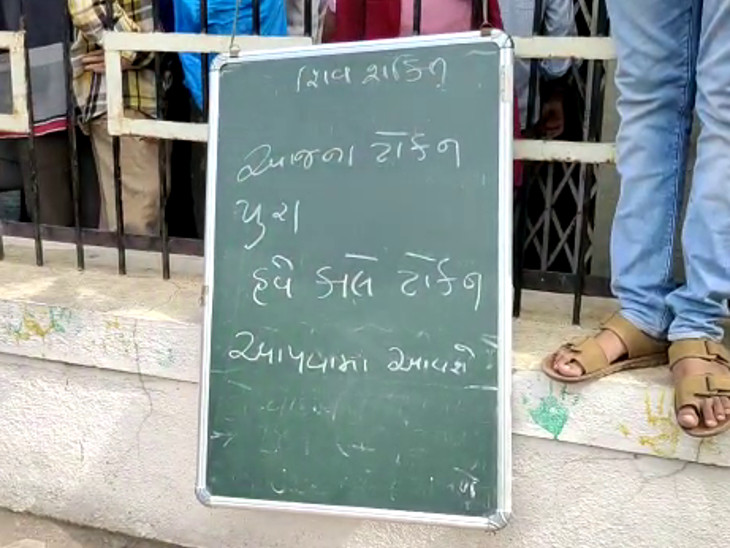 શિવ શક્તિ
આજના ટોકન
પુરા
હવે કાલે ટોકન
આપવામા આવશે